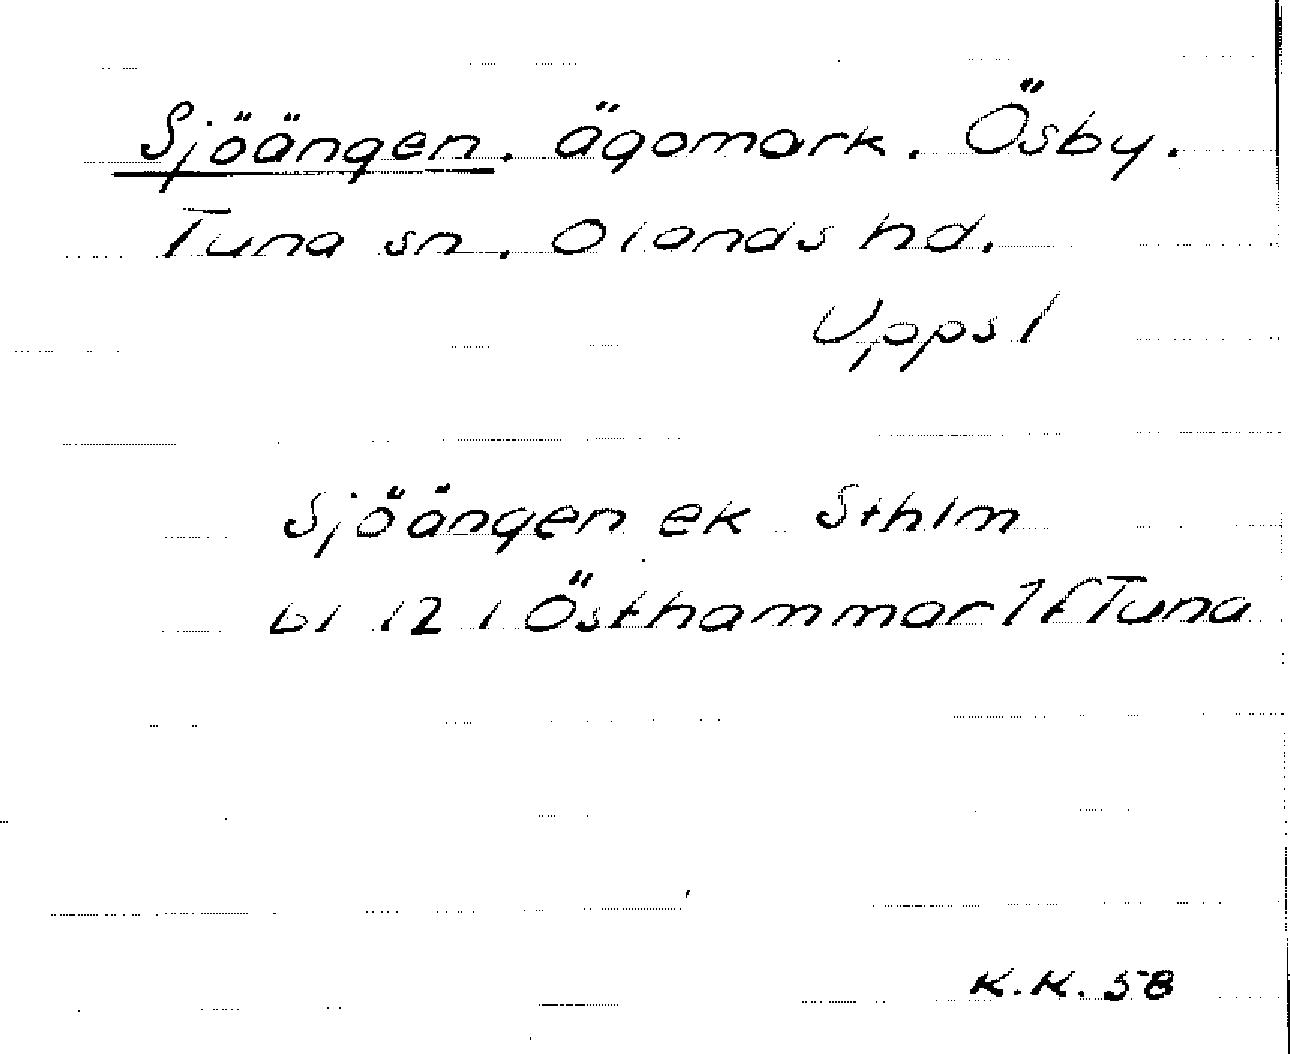 Sjöängen. ägomark. Ösby.
Tuna sn. Olands hd.
Uppsl
Sjöängen ek Sthlm
bl 121 Östhammar 7f Tuna
K.K. 58